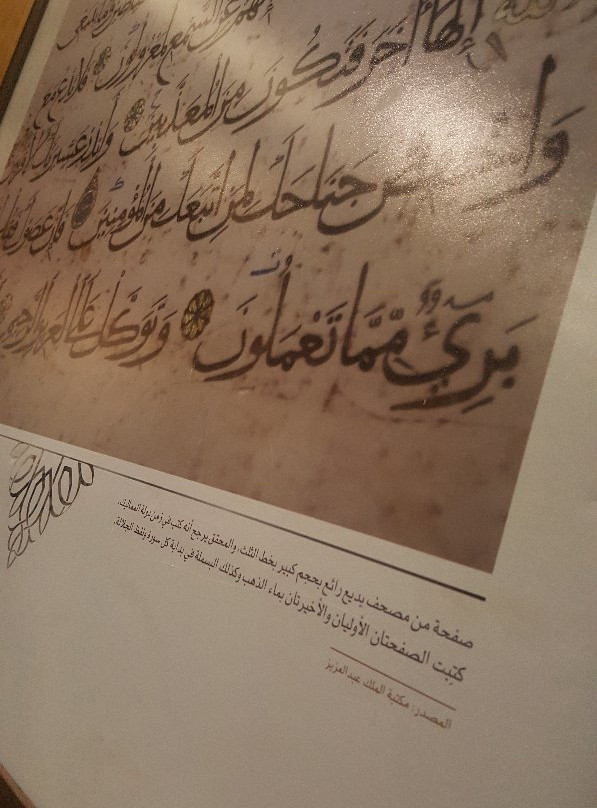 إنهم عن السمع لمعزولون فلا تدع مع
إلها آخر فتكون من المعذبين وأنذر عشيرتك
واخفض جناحك لمن اتبعك من المؤمنين فإن عصوك
بَرِيءٌ مِّمَّا تَعْمَلُونَ وَتَوَكَّلْ عَلَى العزيز الرحيم
صفحة من مصحف بديع رائع بحجم كبير بخط الثلث، والمحقق يرجح أنه كتب في زمن دولة المماليك.
كُتِبت الصفحتان الأوليان والأخيرتان بماء الذهب وكذلك البسملة في بداية كل سورة ولفظ الجلالة.
المصدر: مكتبة الملك عبدالعزيز